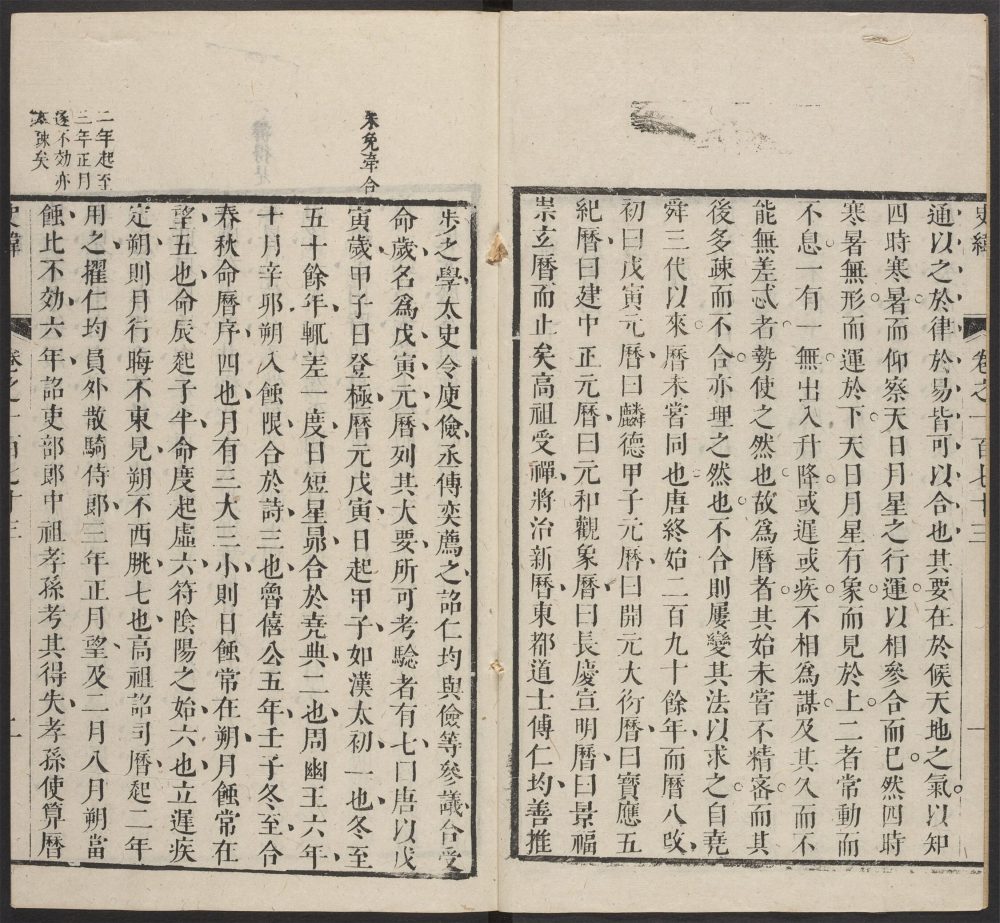 史緯 卷之一百七十三 一
通以之於律於易皆可以合也其要在於候天地之氣以知
四時寒暑而仰察天日月星之行運以相參合而已然四時
寒暑無形而運於下天日月星有象而見於上二者常動而
不息一有一無出入升降或遲或疾不相為謀及其久而不
能無差忒者勢使之然也故為曆者其始未嘗不精密而其
後多疎而不合亦理之然也不合則屢變其法以求之自堯
舜三代以來曆未嘗同也唐終始二百九十餘年而曆八改
初曰戊寅元曆曰麟德甲子元曆曰開元大衍曆曰寶應五
紀曆曰建中正元曆曰元和觀象曆曰長慶宣明曆曰景福
崇玄曆而止矣高祖受禪將治新曆東都道士傅仁均善推
步之學太史令庾儉丞傅奕薦之詔仁均與儉等參議合受
命歲名為戊寅元曆列其大要所可考驗者有七曰唐以戊
寅歲甲子日登極曆元戊寅日起甲子如漢太初一也冬至
五十餘年輒差一度日短星昴合於堯典二也周幽王六年
十月辛卯朔入蝕限合於詩三也魯僖公五年壬子冬至合
春秋命曆序四也月有三大三小則日蝕常在朔月蝕常在
望五也命辰起子半命度起虛六符陰陽之始六也立遲疾
定朔則月行晦不東見朔不西朓七也高祖詔司曆起二年
用之擢仁均員外散騎侍郎三年正月望及二月八月朔當
蝕比不効六年詔吏部郎中祖孝孫考其得失孝孫使算曆
史緯 卷之一百七十三 一
未免牽合
二年起至
三年正月
遂不効亦
疎矣